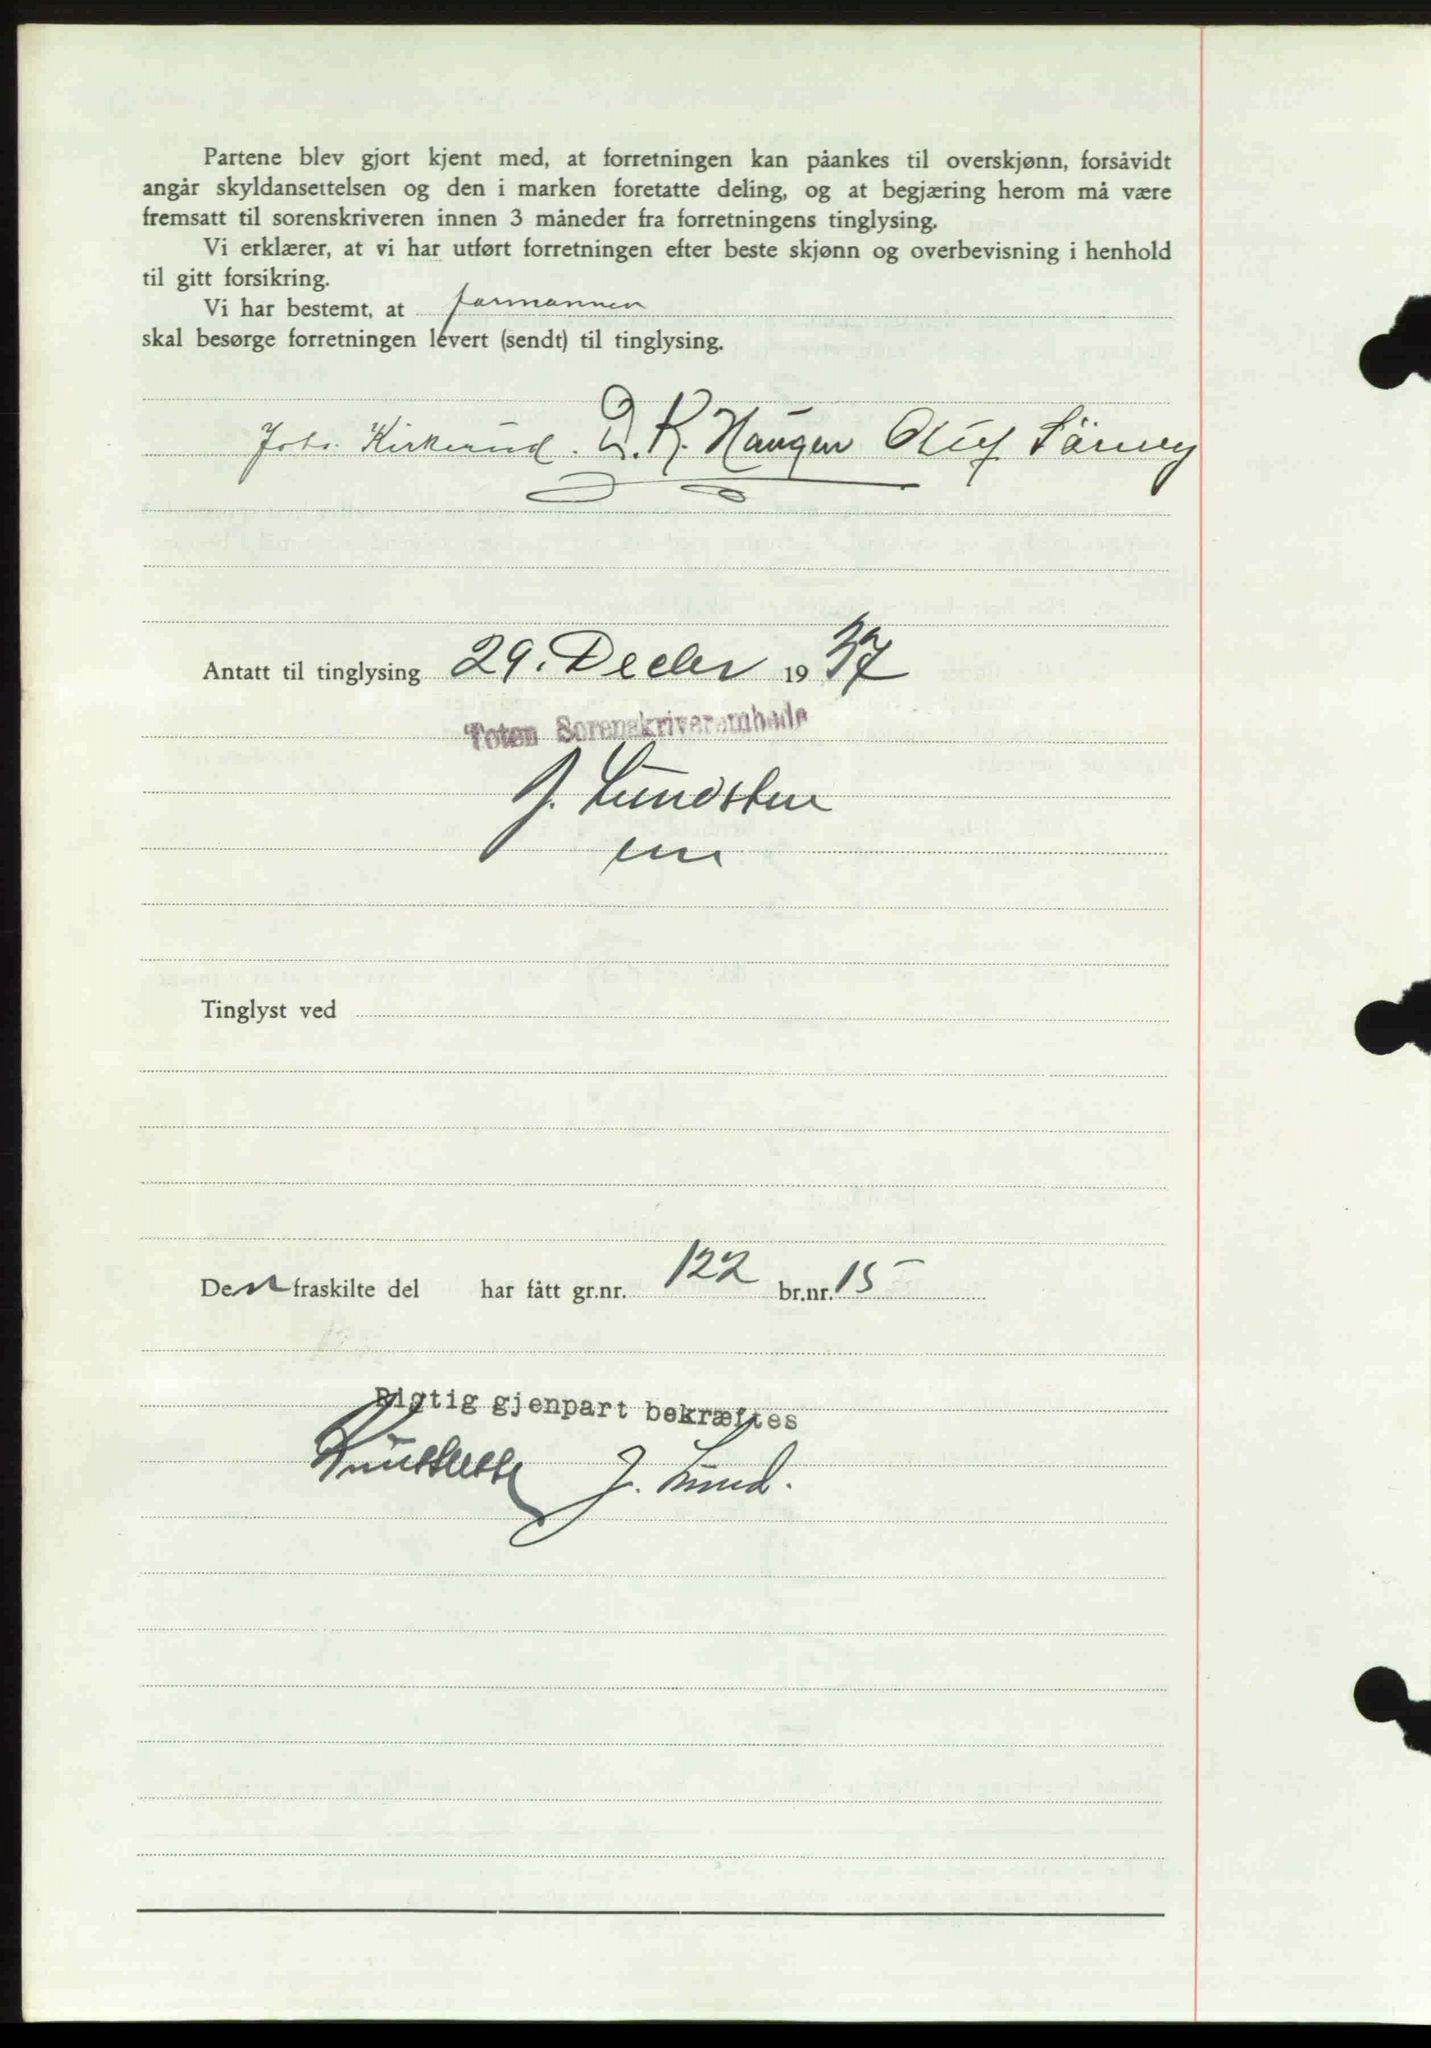 Partene blev gjort kjent med, at forretningen kan påankes til overskjønn, forsåvidt
angår skyldansettelsen og den i marken foretatte deling, og at begjæring herom må være
fremsatt til sorenskriveren innen 3 måneder fra forretningens tinglysing.
Vi erklærer, at vi har utført forretningen efter beste skjønn og overbevisning i henhold
til gitt forsikring.
Vi har bestemt, at formannen
skal besørge forretningen levert (sendt) til tinglysing.
Johs. Kirkerud. D. K. Haugen Oluf
Antatt til tinglysing 29. Decbr 1937
Toten Sorenskriverembede
J. Lundsten
Tinglyst ved
Den fraskilte del har fått gr.nr. 122 br.nr. 15
Rigtig gjenpart bekræftes
J. Lund.